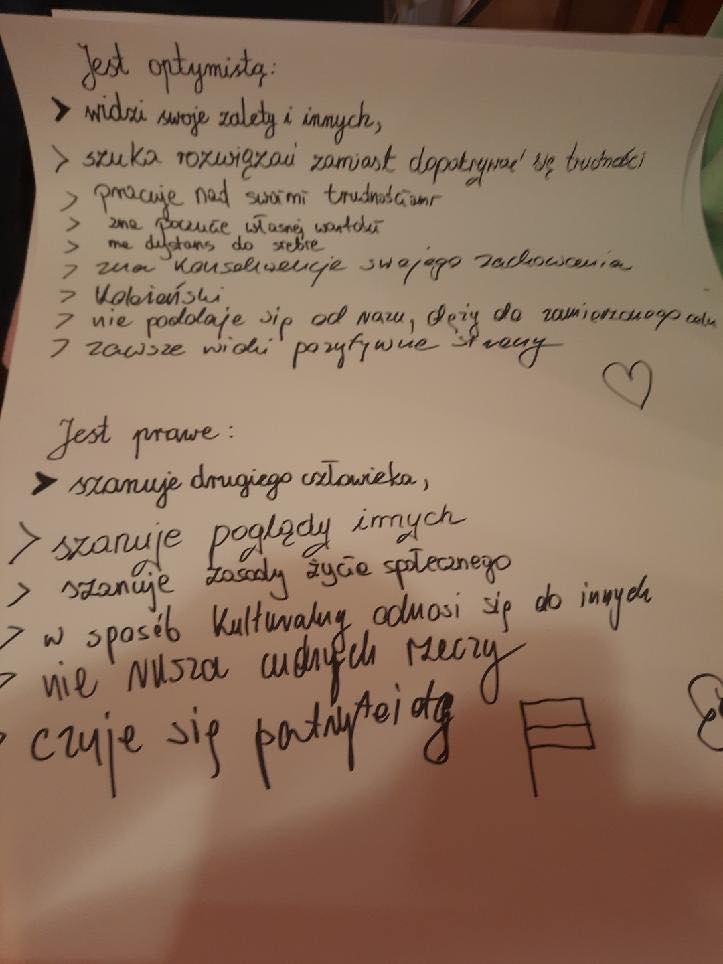 Jest optymistą:
> widzi swoje zalety i innych,
> szuka rozwiązań zamiast dopatrywać się trudności
> pracuje nad swoimi trudnościami
> zna poczucie własnej wartości
> ma dystans do siebie
> zna konsekwencje swojego zachowania
> nie poddaje się od razu, dąży do zamierzonego celu
> zawsze widzi pozytywne strony
Jest prawe:
> szanuje drugiego człowieka,
> szanuje poglądy innych
> szanuje zasady życia społecznego
> w sposób kulturalny odnosi się do innych
> nie rusza cudnych rzeczy
> czuje się